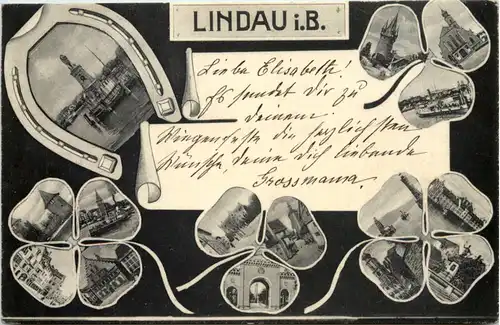 LINDAU i.B.
Liebe Elisabeth!
Es sendet Dir zu
deinem
Wiegenfeste die herzlichsten
Wünsche, deine dich liebende
Grossmama.